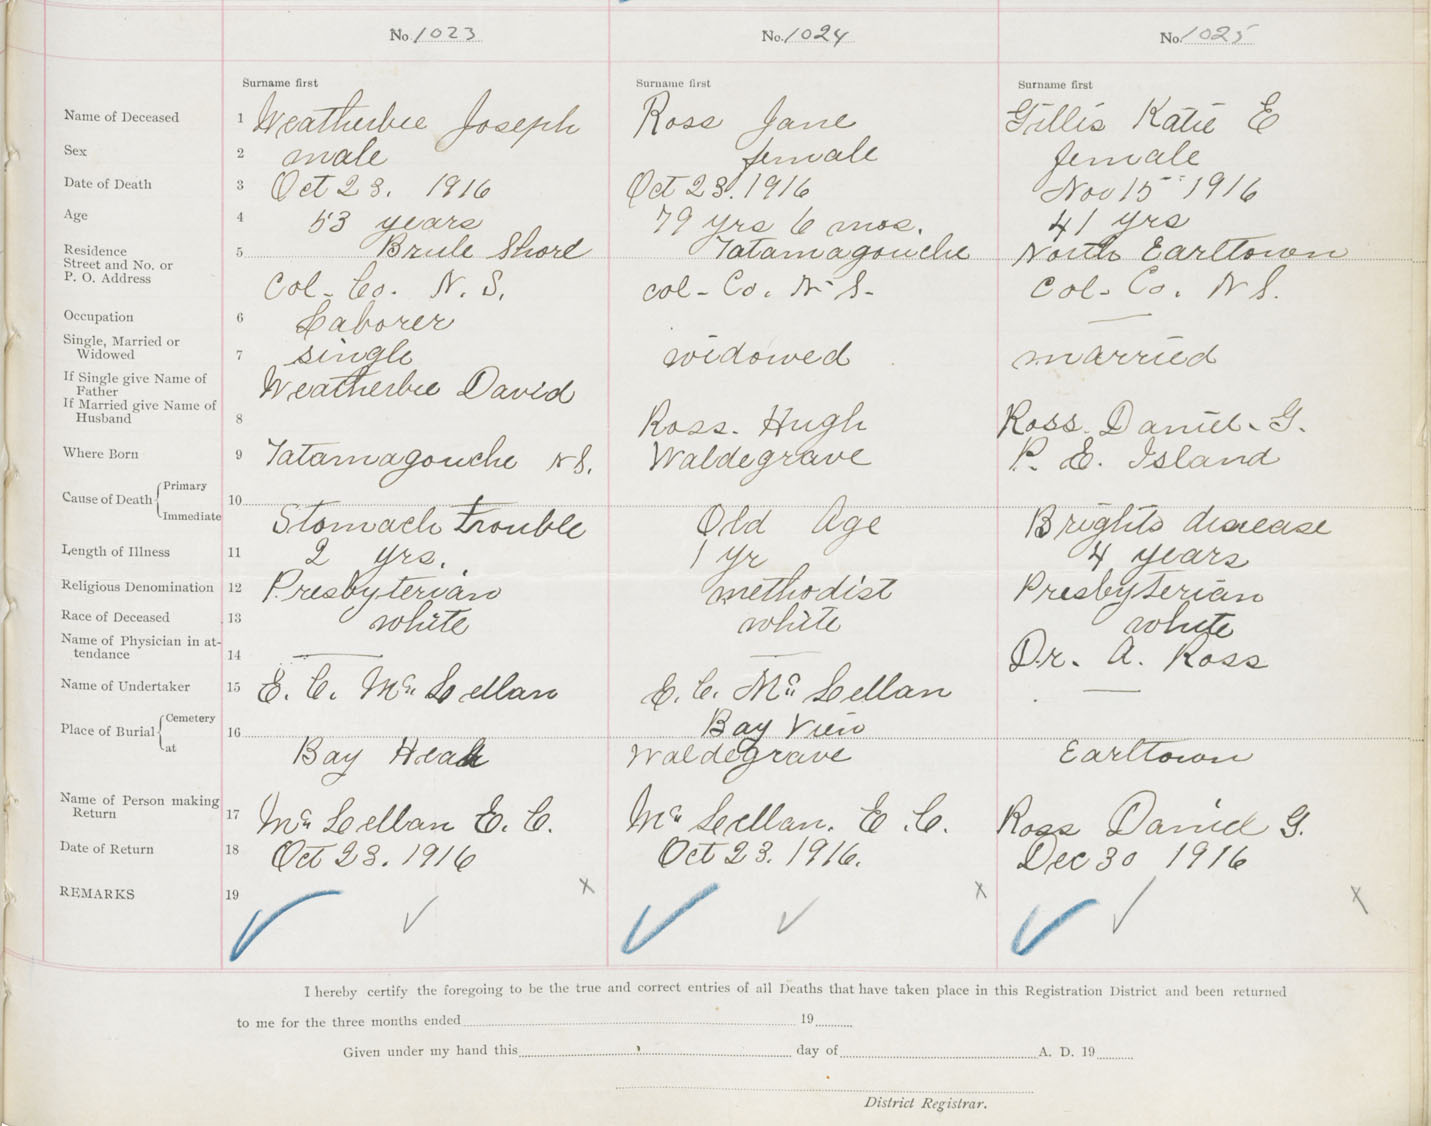 No. 1023 No. 1024 No. 1025
Surname first Surname first Surname first
Name of Deceased 1 Weatherbee Joseph Ross Jane Gillis Katie E
Sex 2 male female female
Date of Death 3 Oct 23. 1916 Oct 23. 1916 Nov 15 1916
Age 4 53 years 79 yrs 6 mos. 41 yrs
Residence
Street and No. or
P. O. Address
5 Brule Shore Tatamagouche North Earltown
Col- Co. N. S. col- Co. N- S- Col- Co. N S.
Occupation 6 Laborer —
Single, Married or
Widowed 7 single widowed married
If Single give Name of
Father Weatherbee David
If Married give Name of
Husband 8 Ross. Hugh Ross. Daniel. G.
Where Born 9 Tatamagouche N S. Waldegrave P. E. Island
Cause of Death { Primary
Immediate
10 Stomach trouble Old Age Brights disease
Length of Illness 11 2 yrs. 1 yr 4 years
Religious Denomination 12 Presbyterian methodist Presbyterian
Race of Deceased 13 white white white
Name of Physician in at-
tendance 14 — — Dr. A. Ross
Name of Undertaker 15 E. C. Mc Lellan E. C. Mc Lellan —
Place of Burial { Cemetery
at
16 Bay View
Bay Head Waldegrave Earltown
Name of Person making
Return 17 Mc Lellan E. C. Mc Lellan. E. C. Ross Daniel G.
Date of Return 18 Oct 23. 1916 Oct 23. 1916. Dec 30 1916
REMARKS 19 ✓ ✓ x ✓ ✓ x ✓ ✓ x
I hereby certify the foregoing to be the true and correct entries of all Deaths that have taken place in this Registration District and been returned
to me for the three months ended 19
Given under my hand this day of A. D. 19
District Registrar.